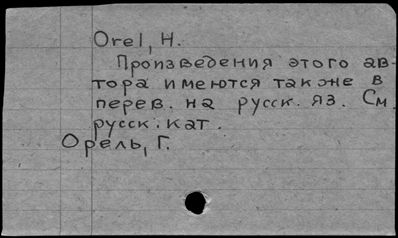 Orel, H.
Произведения этого ав-
тора имеются также в
перев. на русск. яз. См.
русск. кат.
Орель, Г.